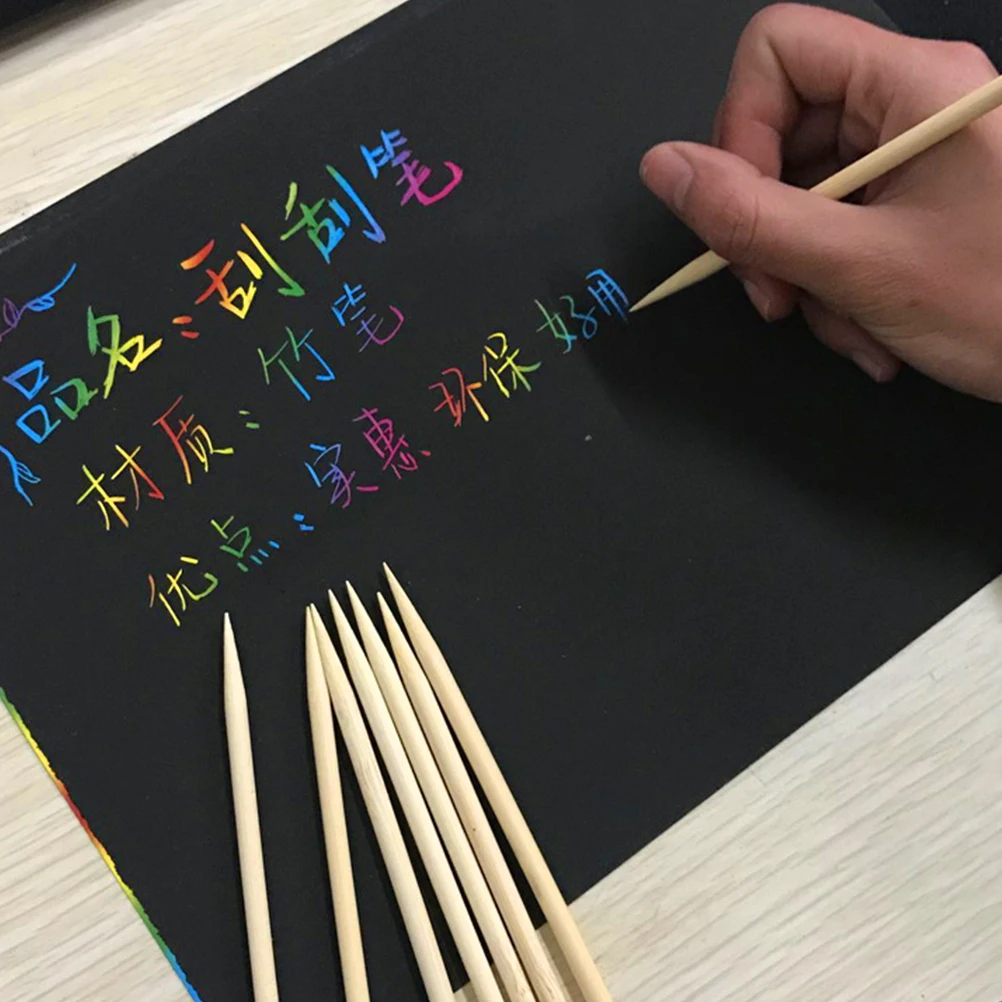 品名:刮刮笔
材质:竹笔
优点:实惠 环保 好用